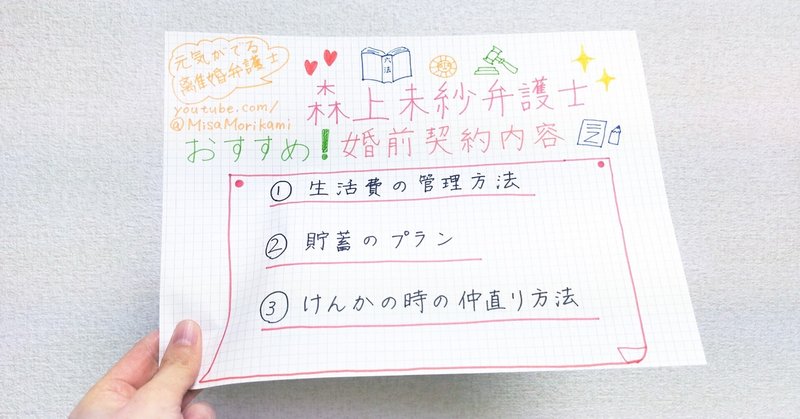 元気がでる
離婚弁護士
youtube.com/
@MisaMorikami
六法
森上未紗弁護士
おすすめ!婚前契約内容
① 生活費の管理方法
② 貯蓄のプラン
③ けんかの時の仲直り方法